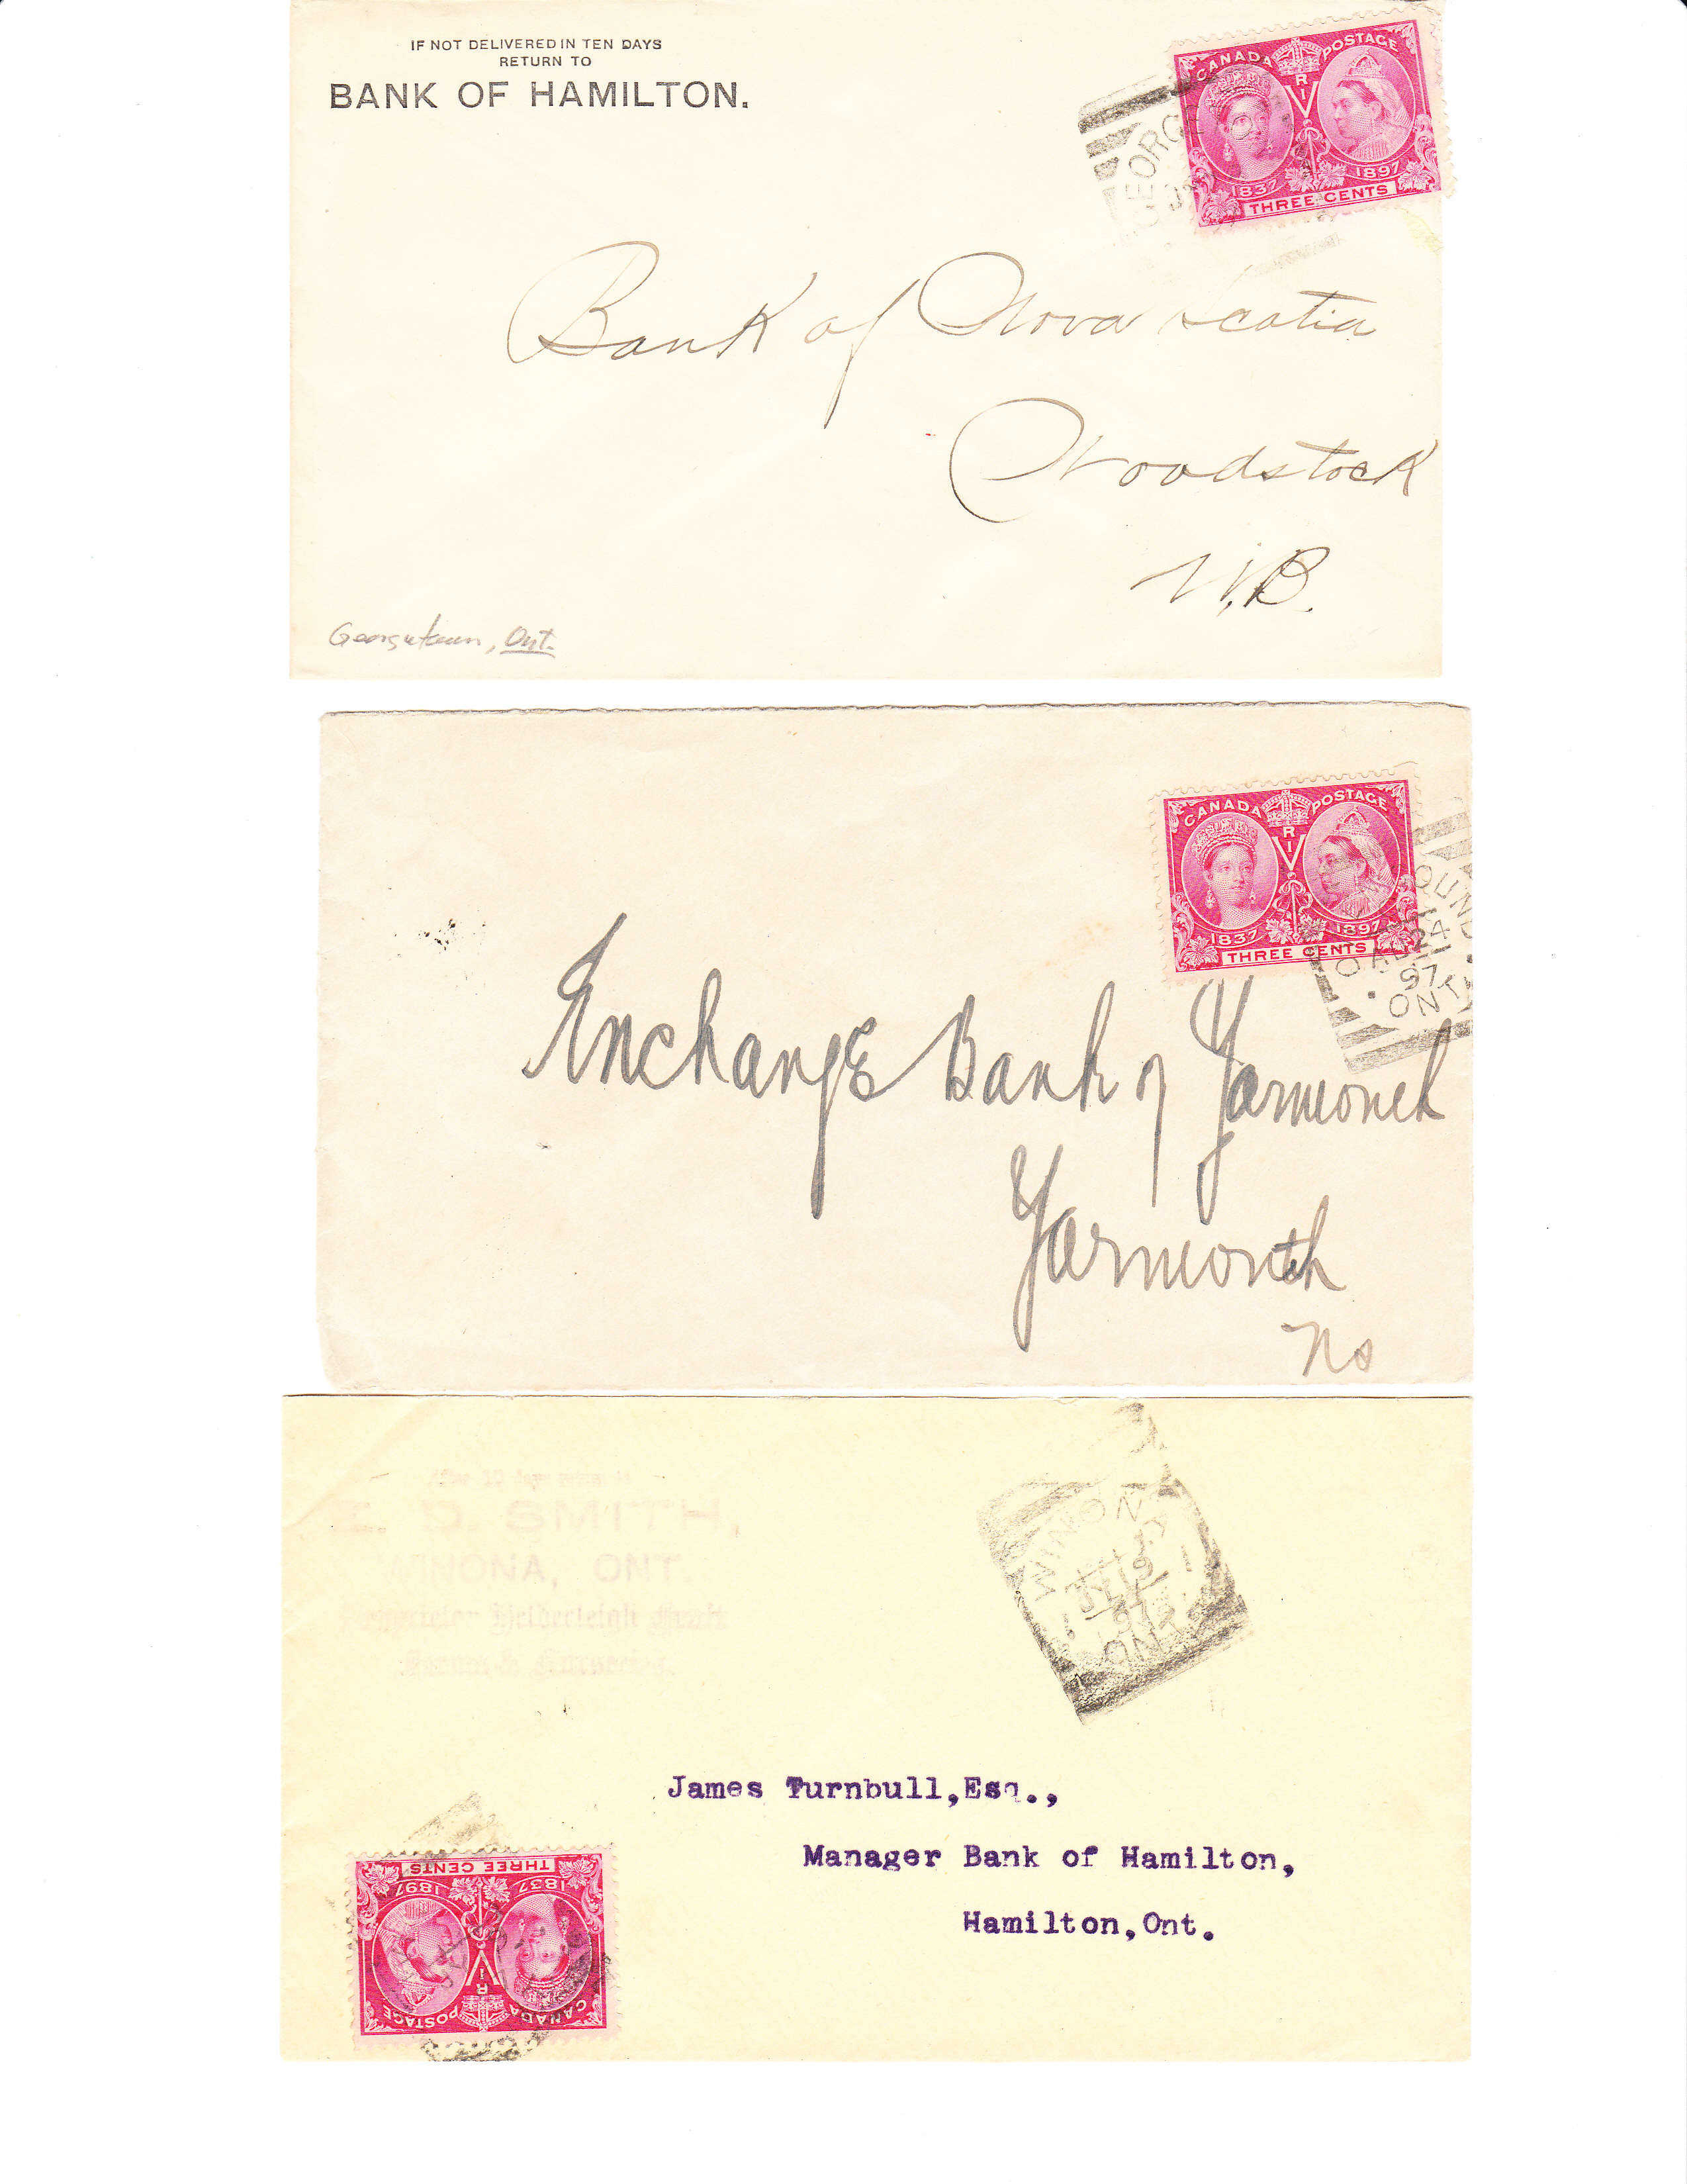 IF NOT DELIVERED IN TEN DAYS
RETURN TO
BANK OF HAMILTON.
CANADA POSTAGE
V R I
1837 1897
THREE CENTS
Bank of Nova Scotia
Woodstock
N.B.
Georgetown, Ont.
CANADA POSTAGE
V R I
1837 1897
THREE CENTS
OUND
AU 24
97
ONT
Exchange Bank of Yarmouth
Yarmouth
NS
After 10 days return to
E. D. SMITH,
WINONA, ONT.
Proprietor Helderleigh Fruit
Farms & Nurseries.
WINONA
JY 19
97
ONT
James Turnbull,Esq.,
Manager Bank of Hamilton,
Hamilton,Ont.
CANADA POSTAGE
V R I
1837 1897
THREE CENTS